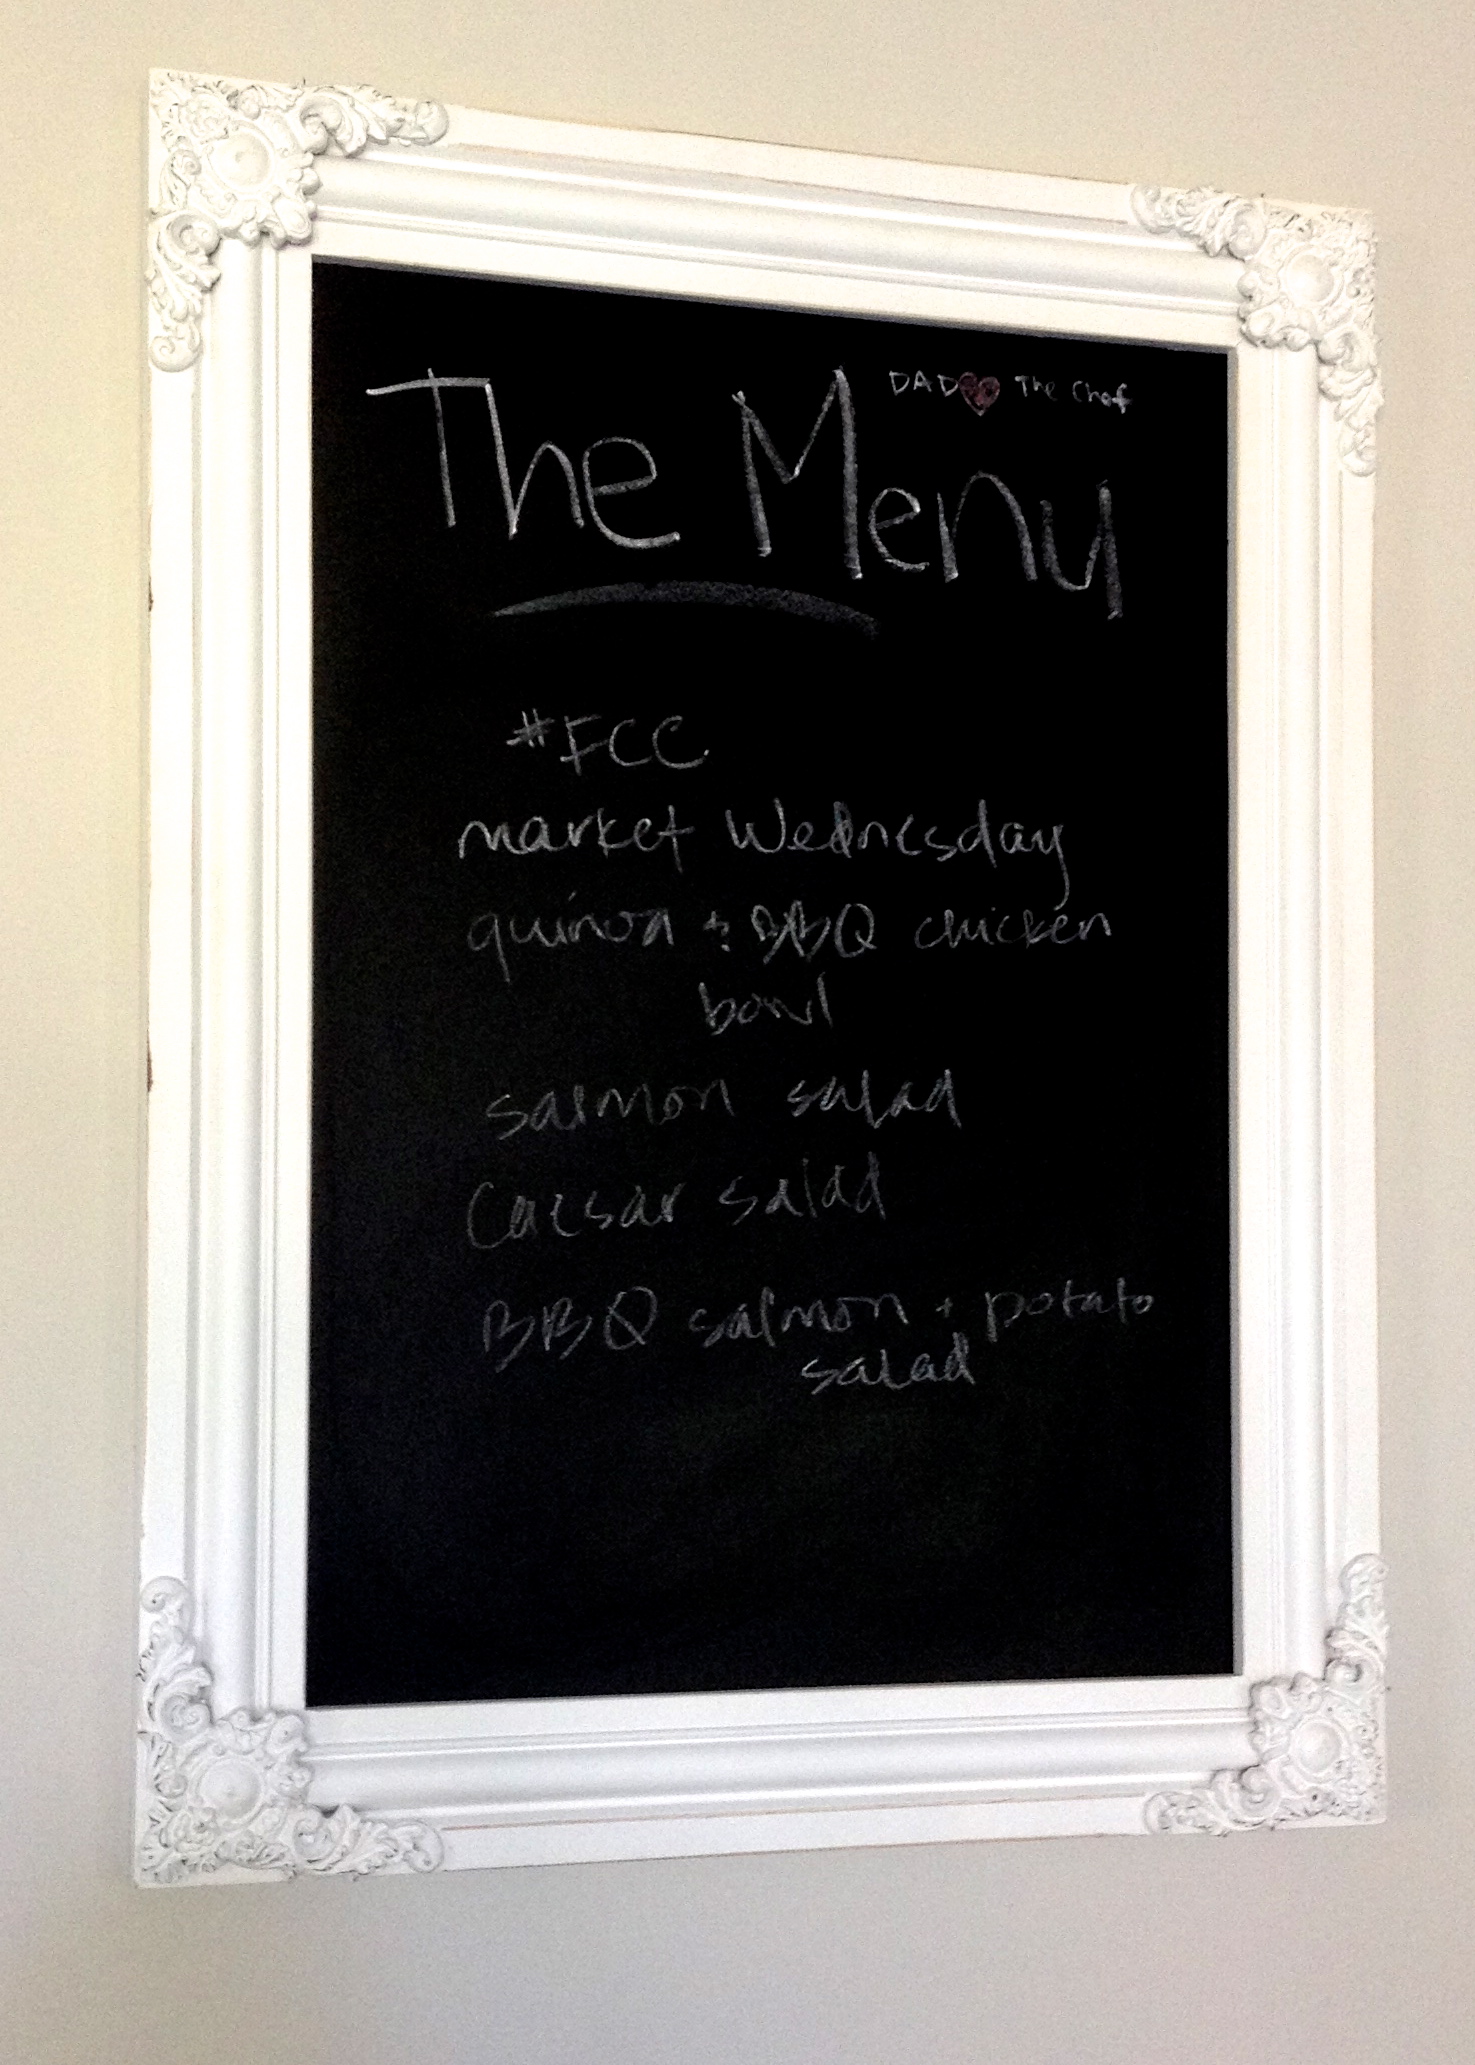 DAD The Chef
The Menu
#FCC
market Wednesday
quinoa + BBQ chicken
bowl
salmon salad
Caesar salad
BBQ salmon + potato
salad